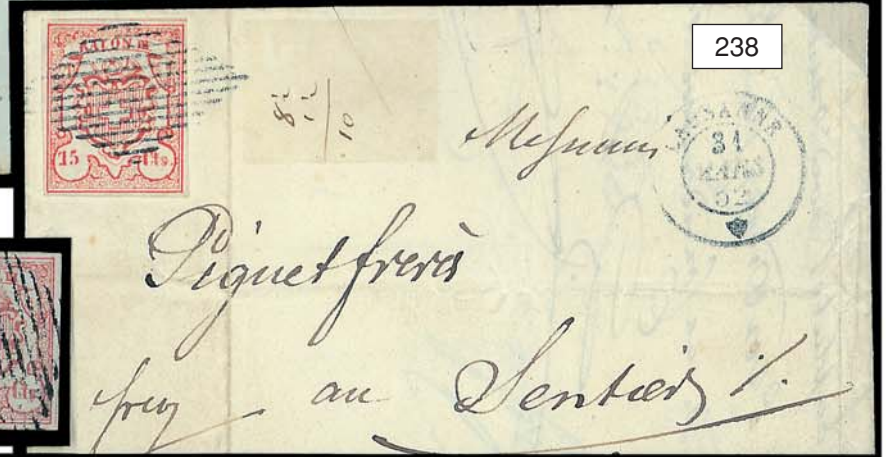 238
RAYON III
15 Cts.
LAUSANNE
31
MARS
52
8½
1½
10
Messieurs
Piguet frères
au Sentier /.